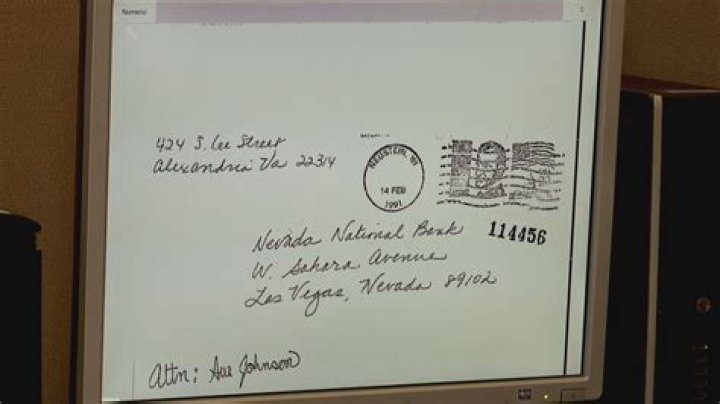 Numeric
424 S. Lee Street
Alexandria Va 22314
NEGSTEIN, WI
14 FEB
1991
Nevada National Bank
114456
W. Sahara Avenue
Las Vegas, Nevada 89102
Attn: Sue Johnson